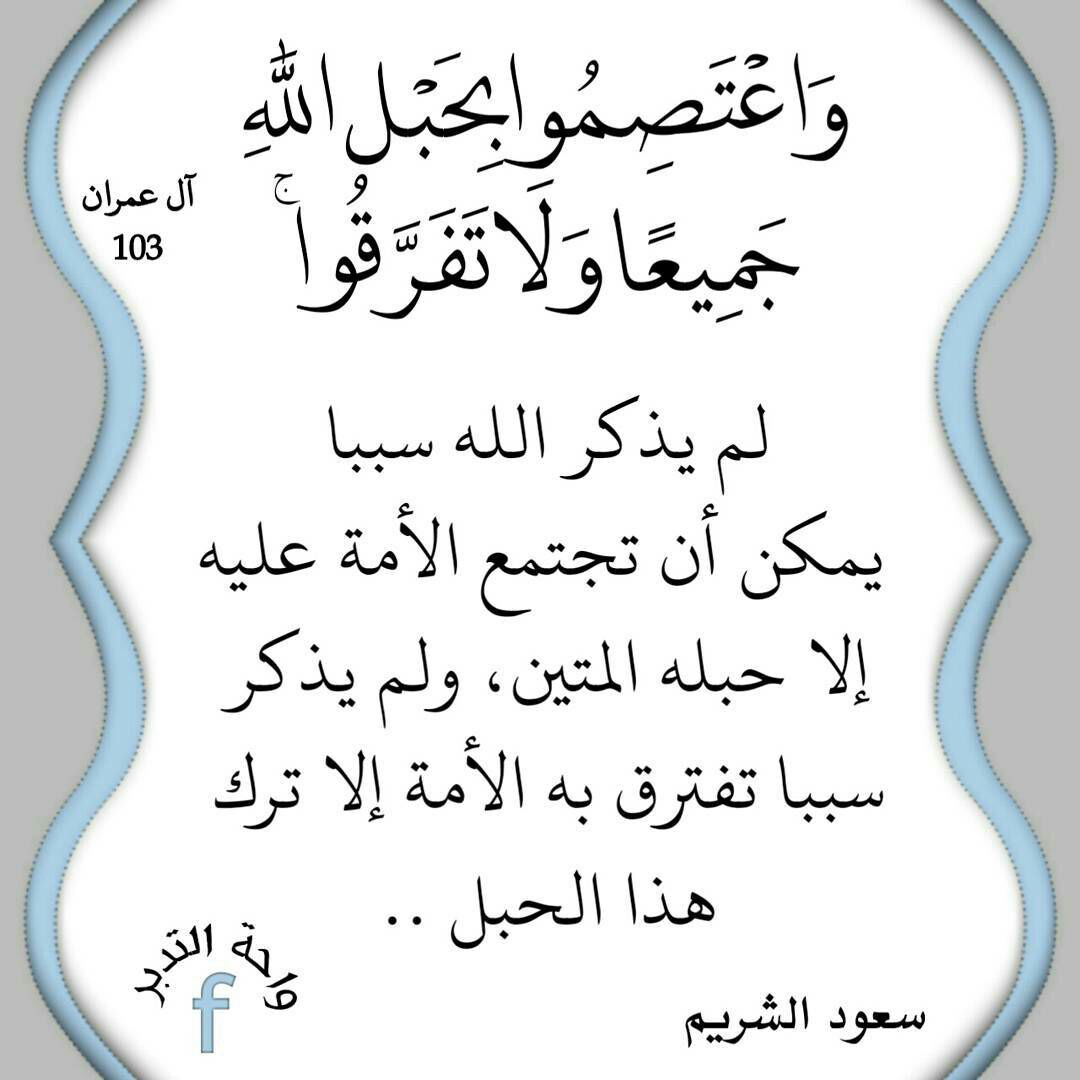 وَاعْتَصِمُوا بِحَبْلِ اللَّهِ
جَمِيعًا وَلَا تَفَرَّقُوا ۚ
آل عمران
103
لم يذكر الله سببا
يمكن أن تجتمع الأمة عليه
إلا حبله المتين، ولم يذكر
سببا تفترق به الأمة إلا ترك
هذا الحبل ..
سعود الشريم
واحة التدبر
f